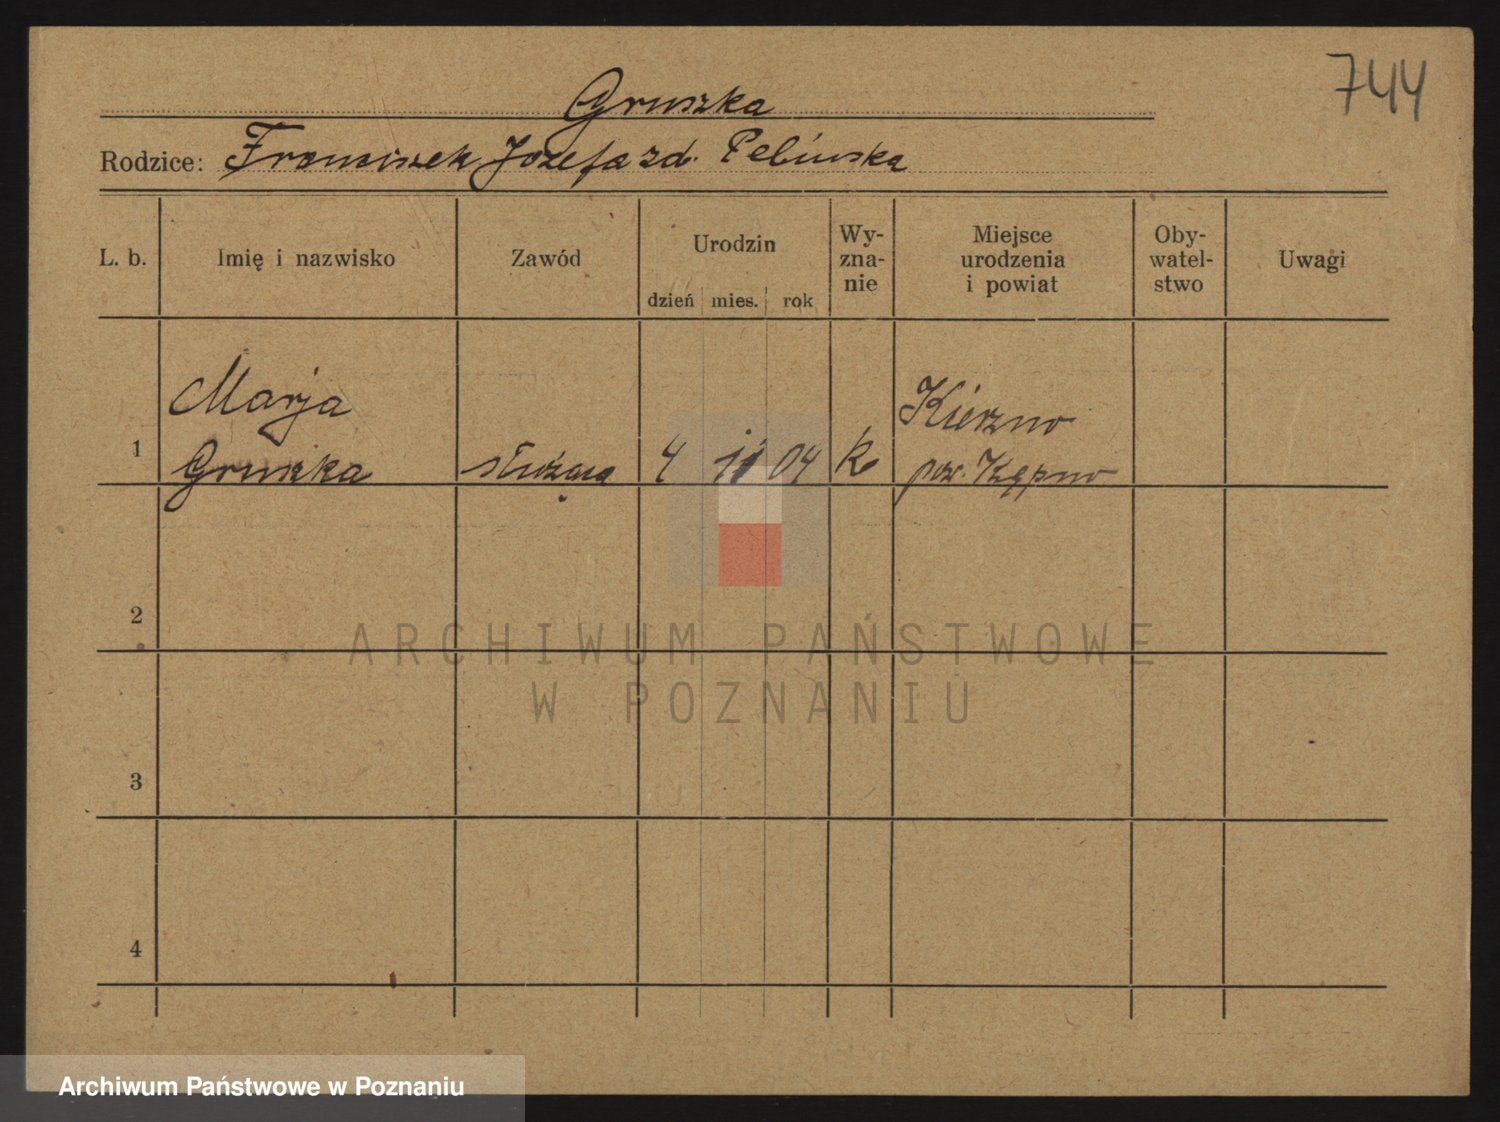 744
Gruszka
Rodzice: Franciszek Józefa zd. Pelińska
L. b. Imię i nazwisko Zawód Urodzin dzień mies. rok Wy-zna-nie Miejsce urodzenia i powiat Oby-watel-stwo Uwagi
Marja
1 Gruszka służąca 4 11 04 k Kierzno
pow. Kępno
2
3
4
ARCHIWUM PAŃSTWOWE
W POZNANIU
Archiwum Państwowe w Poznaniu